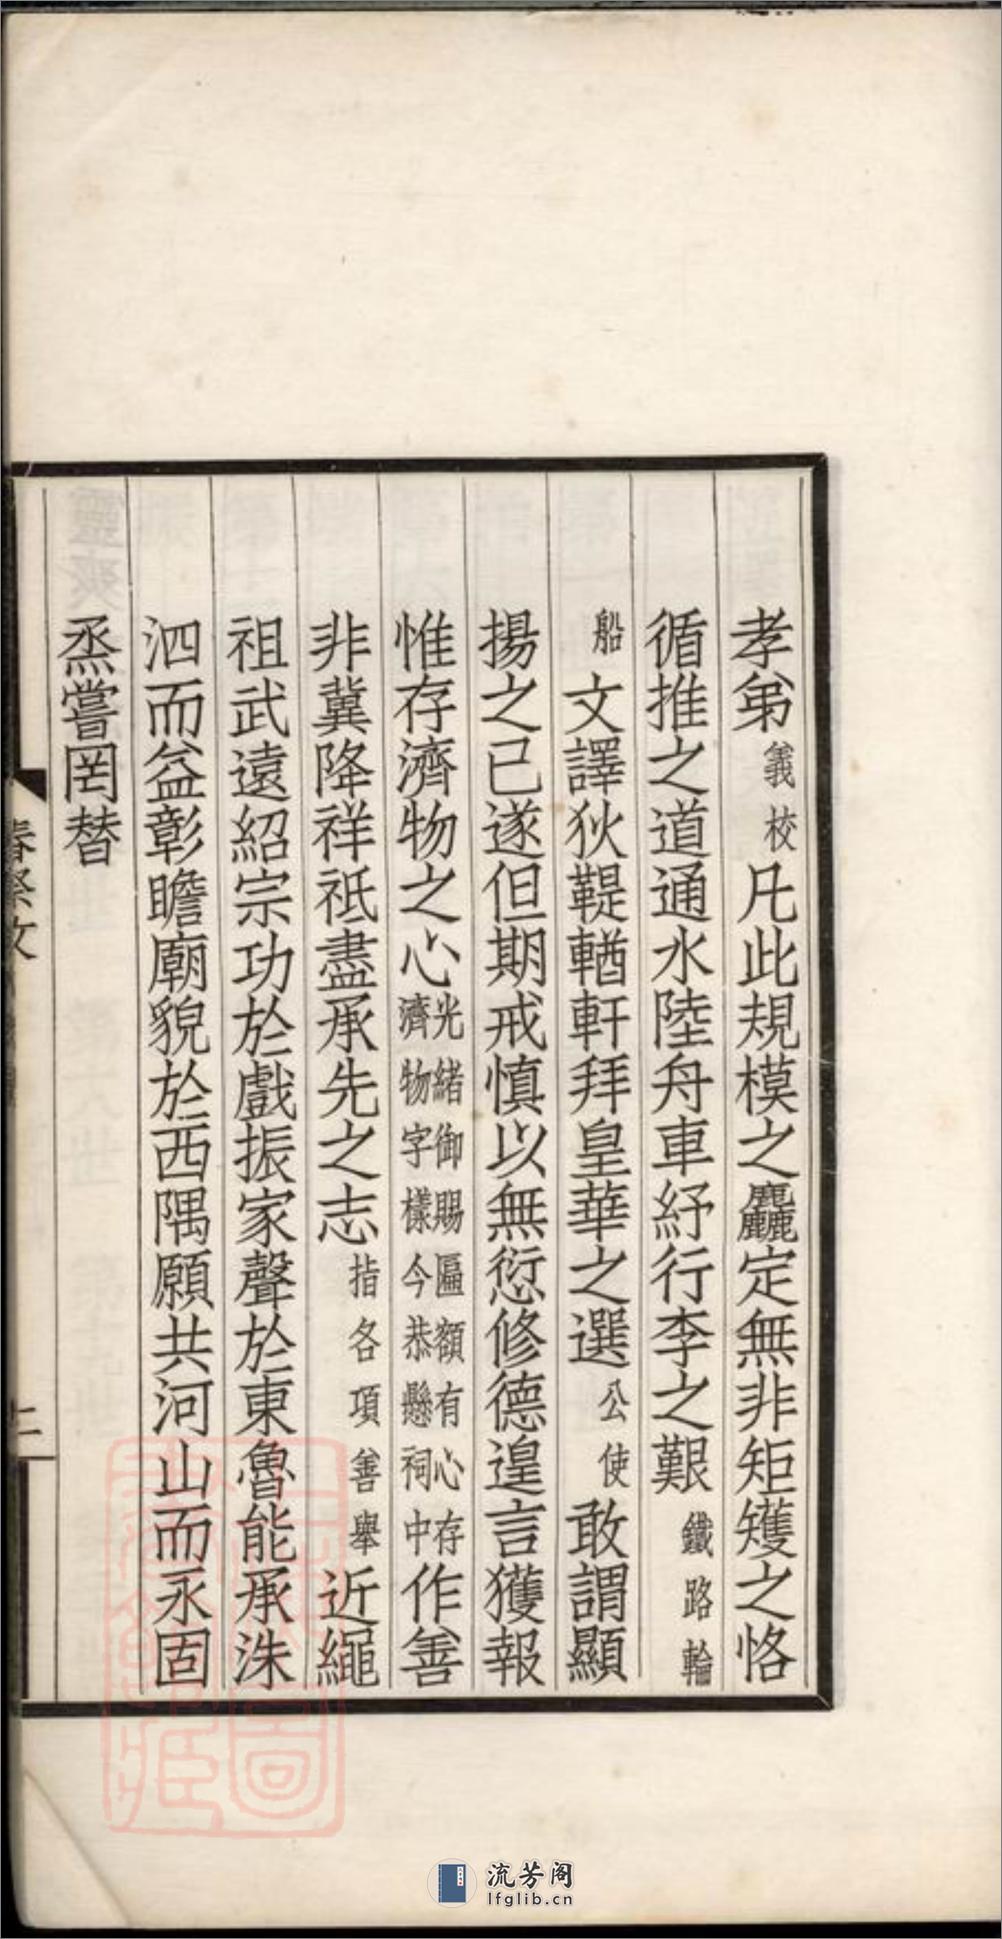 孝弟義校凡此規模之麤定無非矩矱之恪
循推之道通水陸舟車紓行李之艱鐵路輪
船文譯狄鞮輶軒拜皇華之選公使敢謂顯
揚之已遂但期戒慎以無愆修德遑言獲報
惟存濟物之心光緒御賜匾額有心存濟物字樣今恭懸祠中作善
非冀降祥祇盡承先之志指各項善舉近繩
祖武遠紹宗功於戲振家聲於東魯能承洙
泗而益彰瞻廟貌於西隅願共河山而永固
烝嘗罔替
春祭文
流芳阁
lfglib.cn